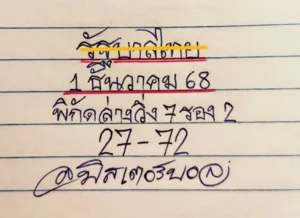 รัฐบาลไทย
1 ธันวาคม 68
พิกัดล่างวิ่ง 7 รอง 2
27-72
มิสเตอร์บอล